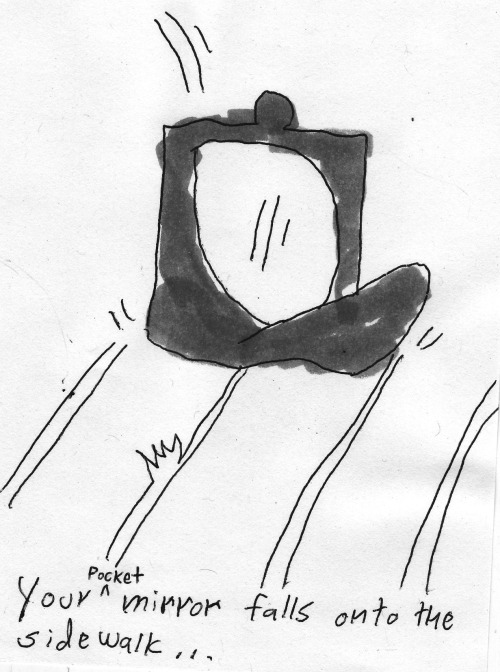 Your ^ Pocket mirror falls onto the
sidewalk...